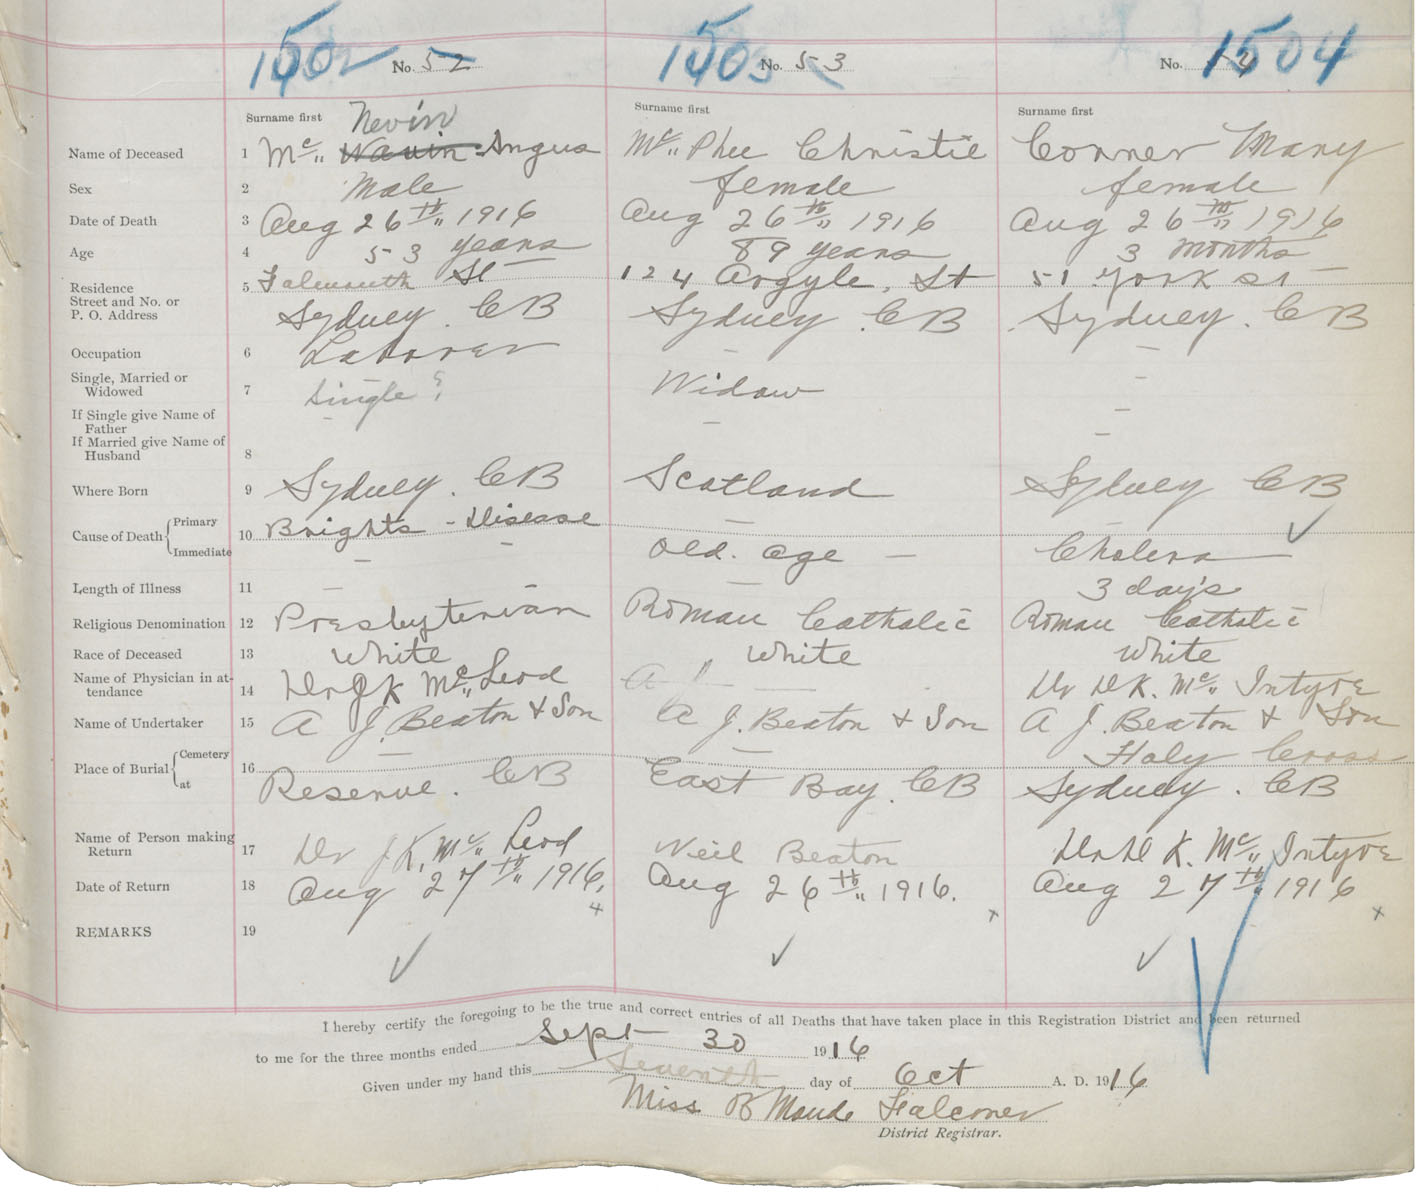 1502 No. 52 1503 No. 53 No. 54 1504
Surname first Surname first Surname first
Nevin
Name of Deceased 1 Mc Navin Angus McPhee Christie Conner Mary
Sex 2 Male female female
Date of Death 3 Aug 26th 1916 Aug 26th 1916 Aug 26th 1916
Age 4 53 years 89 years 3 months
Residence 5 Falmouth St 124 Argyle St 51 York St
Street and No. or
P. O. Address Sydney. CB Sydney. CB Sydney. CB
Occupation 6 Laborer – –
Single, Married or
Widowed 7 Single ? Widow –
If Single give Name of
Father – – –
If Married give Name of
Husband 8 –
Where Born 9 Sydney. CB Scotland Sydney CB
Cause of Death { Primary 10 Brights - Disease –
Immediate – – Old. age – Cholera
Length of Illness 11 – – – 3 days
Religious Denomination 12 Presbyterian Roman Catholic Roman Catholic
Race of Deceased 13 White White White
Name of Physician in at-
tendance 14 Dr J K McLeod A J — Dr D K. McIntyre
Name of Undertaker 15 A J. Beaton & Son A J. Beaton & Son A J. Beaton & Son
Place of Burial { Cemetery 16 – – Holy Cross
at Reserve. CB East Bay. CB Sydney. CB
Name of Person making
Return 17 Dr J K. McLeod Neil Beaton Dr D K. McIntyre
Date of Return 18 Aug 27th 1916. Aug 26th 1916. Aug 27th 1916
REMARKS 19
I hereby certify the foregoing to be the true and correct entries of all Deaths that have taken place in this Registration District and been returned
to me for the three months ended Sept 30 1916
Given under my hand this Seventh day of Oct A. D. 1916
Miss B Maude Falconer
District Registrar.